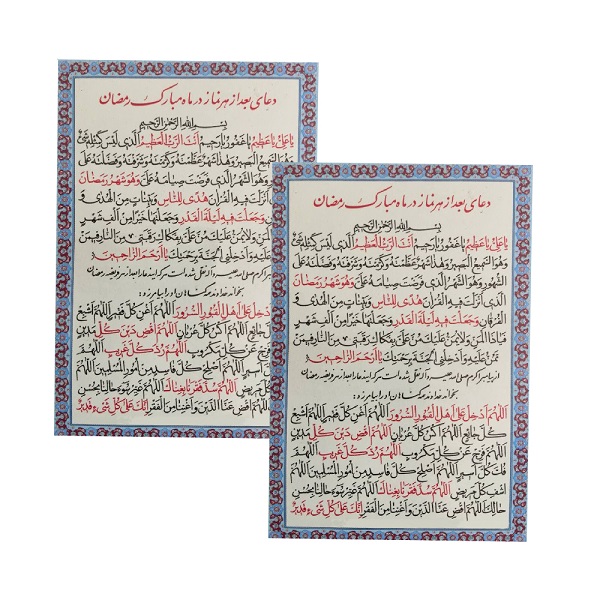 دعای بعد از هر نماز در ماه مبارک رمضان
بِسْمِ اللهِ الرَّحْمٰنِ الرَّحیمِ
یا عَلِیُّ یا عَظیمُ یا غَفُورُ یا رَحیمُ اَنْتَ الرَّبُّ الْعَظیمُ الَّذی لَیْسَ کَمِثْلِهِ شَیْءٌ
وَهُوَ السَّمیعُ الْبَصیرُ وَهٰذا شَهْرٌ عَظَّمْتَهُ وَکَرَّمْتَهُ وَشَرَّفْتَهُ وَفَضَّلْتَهُ عَلَی
وَهُوَ الشَّهْرُ الَّذی فَرَضْتَ صِیامَهُ عَلَیَّ وَهُوَ شَهْرُ رَمَضانَ
اَنْزَلْتَ فیهِ الْقُرْآنَ هُدیً لِلنّاسِ وَبَیِّناتٍ مِنَ الْهُدی وَ
وَجَعَلْتَ فیهِ لَیْلَةَ الْقَدْرِ وَجَعَلْتَها خَیْراً مِنْ اَلْفِ شَهْرٍ
الْمَنِّ وَلا یُمَنُّ عَلَیْکَ مُنَّ عَلَیَّ بِفَکاکِ رَقَبَتی مِنَ النّارِ فیمَنْ
الْجَنَّةَ بِرَحْمَتِکَ یا اَرْحَمَ الرّاحِمینَ
اکرم صلی الله علیه و آله نقل شده است هر که این دعا را بعد از هر فریضه رمضان
بخواند خداوند گناهان او را بیامرزد:
اَدْخِلْ عَلی اَهْلِ الْقُبُورِ السُّرُورَ اَللّهُمَّ اَغْنِ کُلَّ فَقیرٍ اَللّهُمَّ اَشْبِعْ
جائِعٍ اَللّهُمَّ اکْسُ کُلَّ عُرْیانٍ اَللّهُمَّ اقْضِ دَیْنَ کُلِّ مَدینٍ
فَرِّجْ عَنْ کُلِّ مَکْرُوبٍ اَللّهُمَّ رُدَّ کُلَّ غَریبٍ اَللّهُمَّ
اَسیرٍ اَللّهُمَّ اَصْلِحْ کُلَّ فاسِدٍ مِنْ اُمُورِ الْمُسْلِمینَ اَللّهُمَّ
مَریضٍ اَللّهُمَّ سُدَّ فَقْرَنا بِغِناکَ اَللّهُمَّ غَیِّرْ سُوءَ حالِنا بِحُسْنِ
اَللّهُمَّ اقْضِ عَنَّا الدَّیْنَ وَاَغْنِنا مِنَ الْفَقْرِ اِنَّکَ عَلی کُلِّ شَیْءٍ قَدیرٌ
دعای بعد از هر نماز در ماه مبارک رمضان
بِسْمِ اللهِ الرَّحْمٰنِ الرَّحیمِ
یا عَلِیُّ یا عَظیمُ یا غَفُورُ یا رَحیمُ اَنْتَ الرَّبُّ الْعَظیمُ الَّذی لَیْسَ کَمِثْلِهِ شَیْءٌ
وَهُوَ السَّمیعُ الْبَصیرُ وَهٰذا شَهْرٌ عَظَّمْتَهُ وَکَرَّمْتَهُ وَشَرَّفْتَهُ وَفَضَّلْتَهُ عَلَی
الشُّهُورِ وَهُوَ الشَّهْرُ الَّذی فَرَضْتَ صِیامَهُ عَلَیَّ وَهُوَ شَهْرُ رَمَضانَ
الَّذی اَنْزَلْتَ فیهِ الْقُرْآنَ هُدیً لِلنّاسِ وَبَیِّناتٍ مِنَ الْهُدی وَ
الْفُرْقانِ وَجَعَلْتَ فیهِ لَیْلَةَ الْقَدْرِ وَجَعَلْتَها خَیْراً مِنْ اَلْفِ شَهْرٍ
فَیا ذَا الْمَنِّ وَلا یُمَنُّ عَلَیْکَ مُنَّ عَلَیَّ بِفَکاکِ رَقَبَتی مِنَ النّارِ فیمَنْ
تَمُنُّ عَلَیْهِ وَاَدْخِلْنِی الْجَنَّةَ بِرَحْمَتِکَ یا اَرْحَمَ الرّاحِمینَ
از پیامبر اکرم صلی الله علیه و آله نقل شده است هر که این دعا را بعد از هر فریضه رمضان
بخواند خداوند گناهان او را بیامرزد:
اَللّهُمَّ اَدْخِلْ عَلی اَهْلِ الْقُبُورِ السُّرُورَ اَللّهُمَّ اَغْنِ کُلَّ فَقیرٍ اَللّهُمَّ اَشْبِعْ
کُلَّ جائِعٍ اَللّهُمَّ اکْسُ کُلَّ عُرْیانٍ اَللّهُمَّ اقْضِ دَیْنَ کُلِّ مَدینٍ
اَللّهُمَّ فَرِّجْ عَنْ کُلِّ مَکْرُوبٍ اَللّهُمَّ رُدَّ کُلَّ غَریبٍ اَللّهُمَّ
فُکَّ کُلَّ اَسیرٍ اَللّهُمَّ اَصْلِحْ کُلَّ فاسِدٍ مِنْ اُمُورِ الْمُسْلِمینَ اَللّهُمَّ
اشْفِ کُلَّ مَریضٍ اَللّهُمَّ سُدَّ فَقْرَنا بِغِناکَ اَللّهُمَّ غَیِّرْ سُوءَ حالِنا بِحُسْنِ
حالِکَ اَللّهُمَّ اقْضِ عَنَّا الدَّیْنَ وَاَغْنِنا مِنَ الْفَقْرِ اِنَّکَ عَلی کُلِّ شَیْءٍ قَدیرٌ